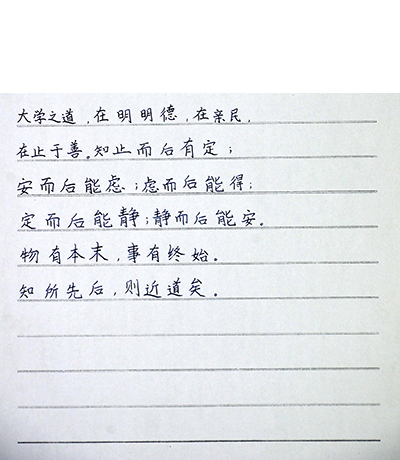 大学之道,在明明德,在亲民,
在止于善。知止而后有定;
安而后能虑;虑而后能得;
定而后能静;静而后能安。
物有本末,事有终始。
知所先后,则近道矣。